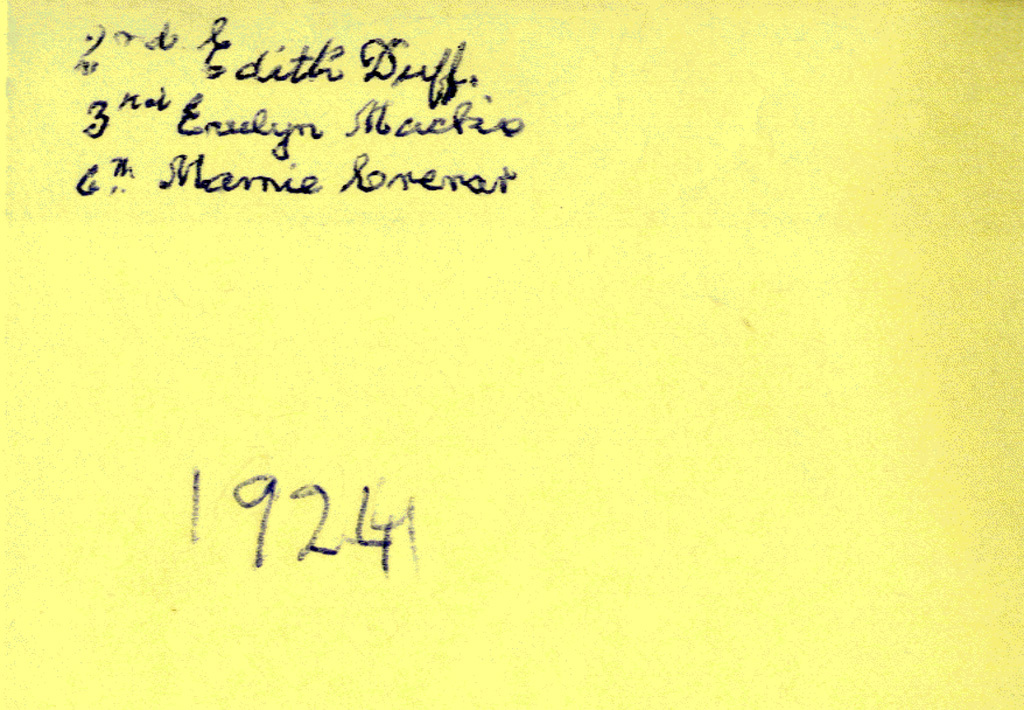 2nd Edith Duff.
3rd Evelyn Mackie
6th Mamie
1924